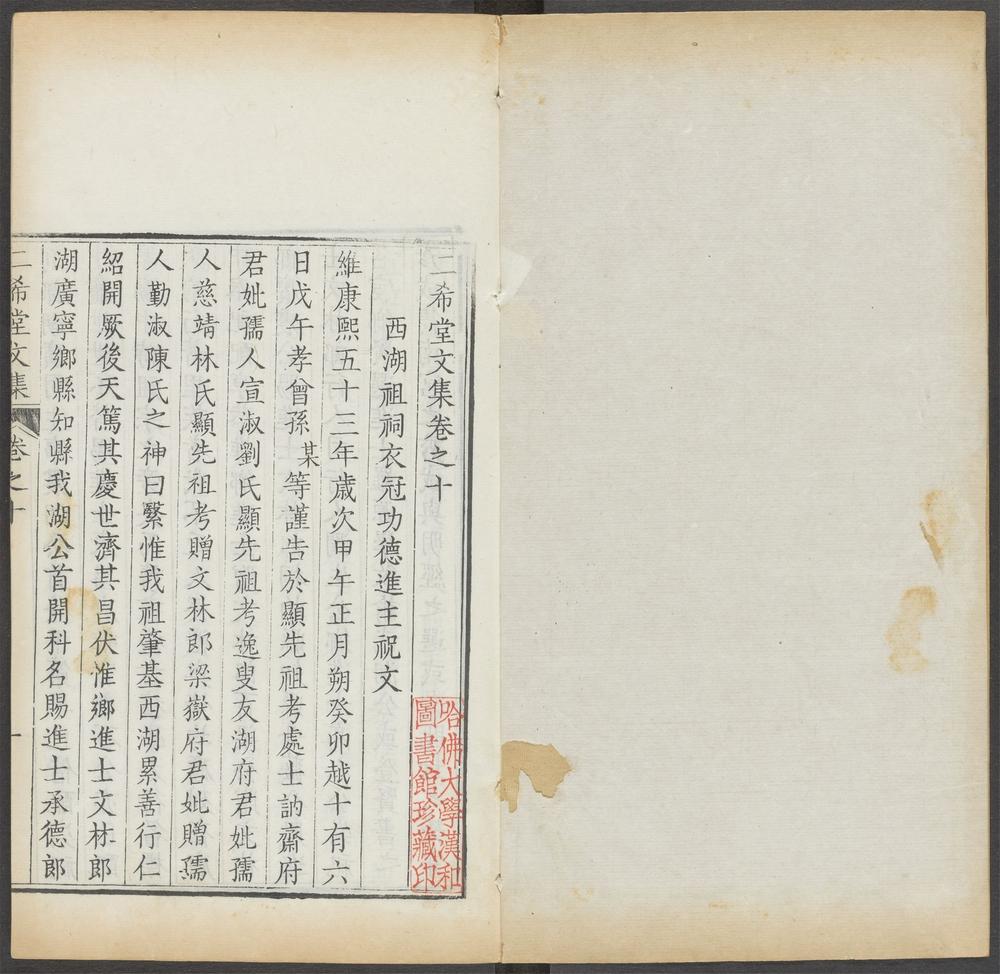 二希堂文集卷之十
西湖祖祠衣冠功德進主祝文
維康熙五十三年歲次甲午正月朔癸卯越十有六
日戊午孝曾孫某等謹告於顯先祖考處士訥齋府
君妣孺人宣淑劉氏顯先祖考逸叟友湖府君妣孺
人慈靖林氏顯先祖考贈文林郎梁嶽府君妣贈孺
人勤淑陳氏之神曰繄惟我祖肇基西湖累善行仁
紹開厥後天篤其慶世濟其昌伏惟鄉進士文林郎
湖廣寧鄉縣知縣我湖公首開科名賜進士承德郎
二希堂文集
卷之十
一
哈佛大學漢和
圖書館珍藏印